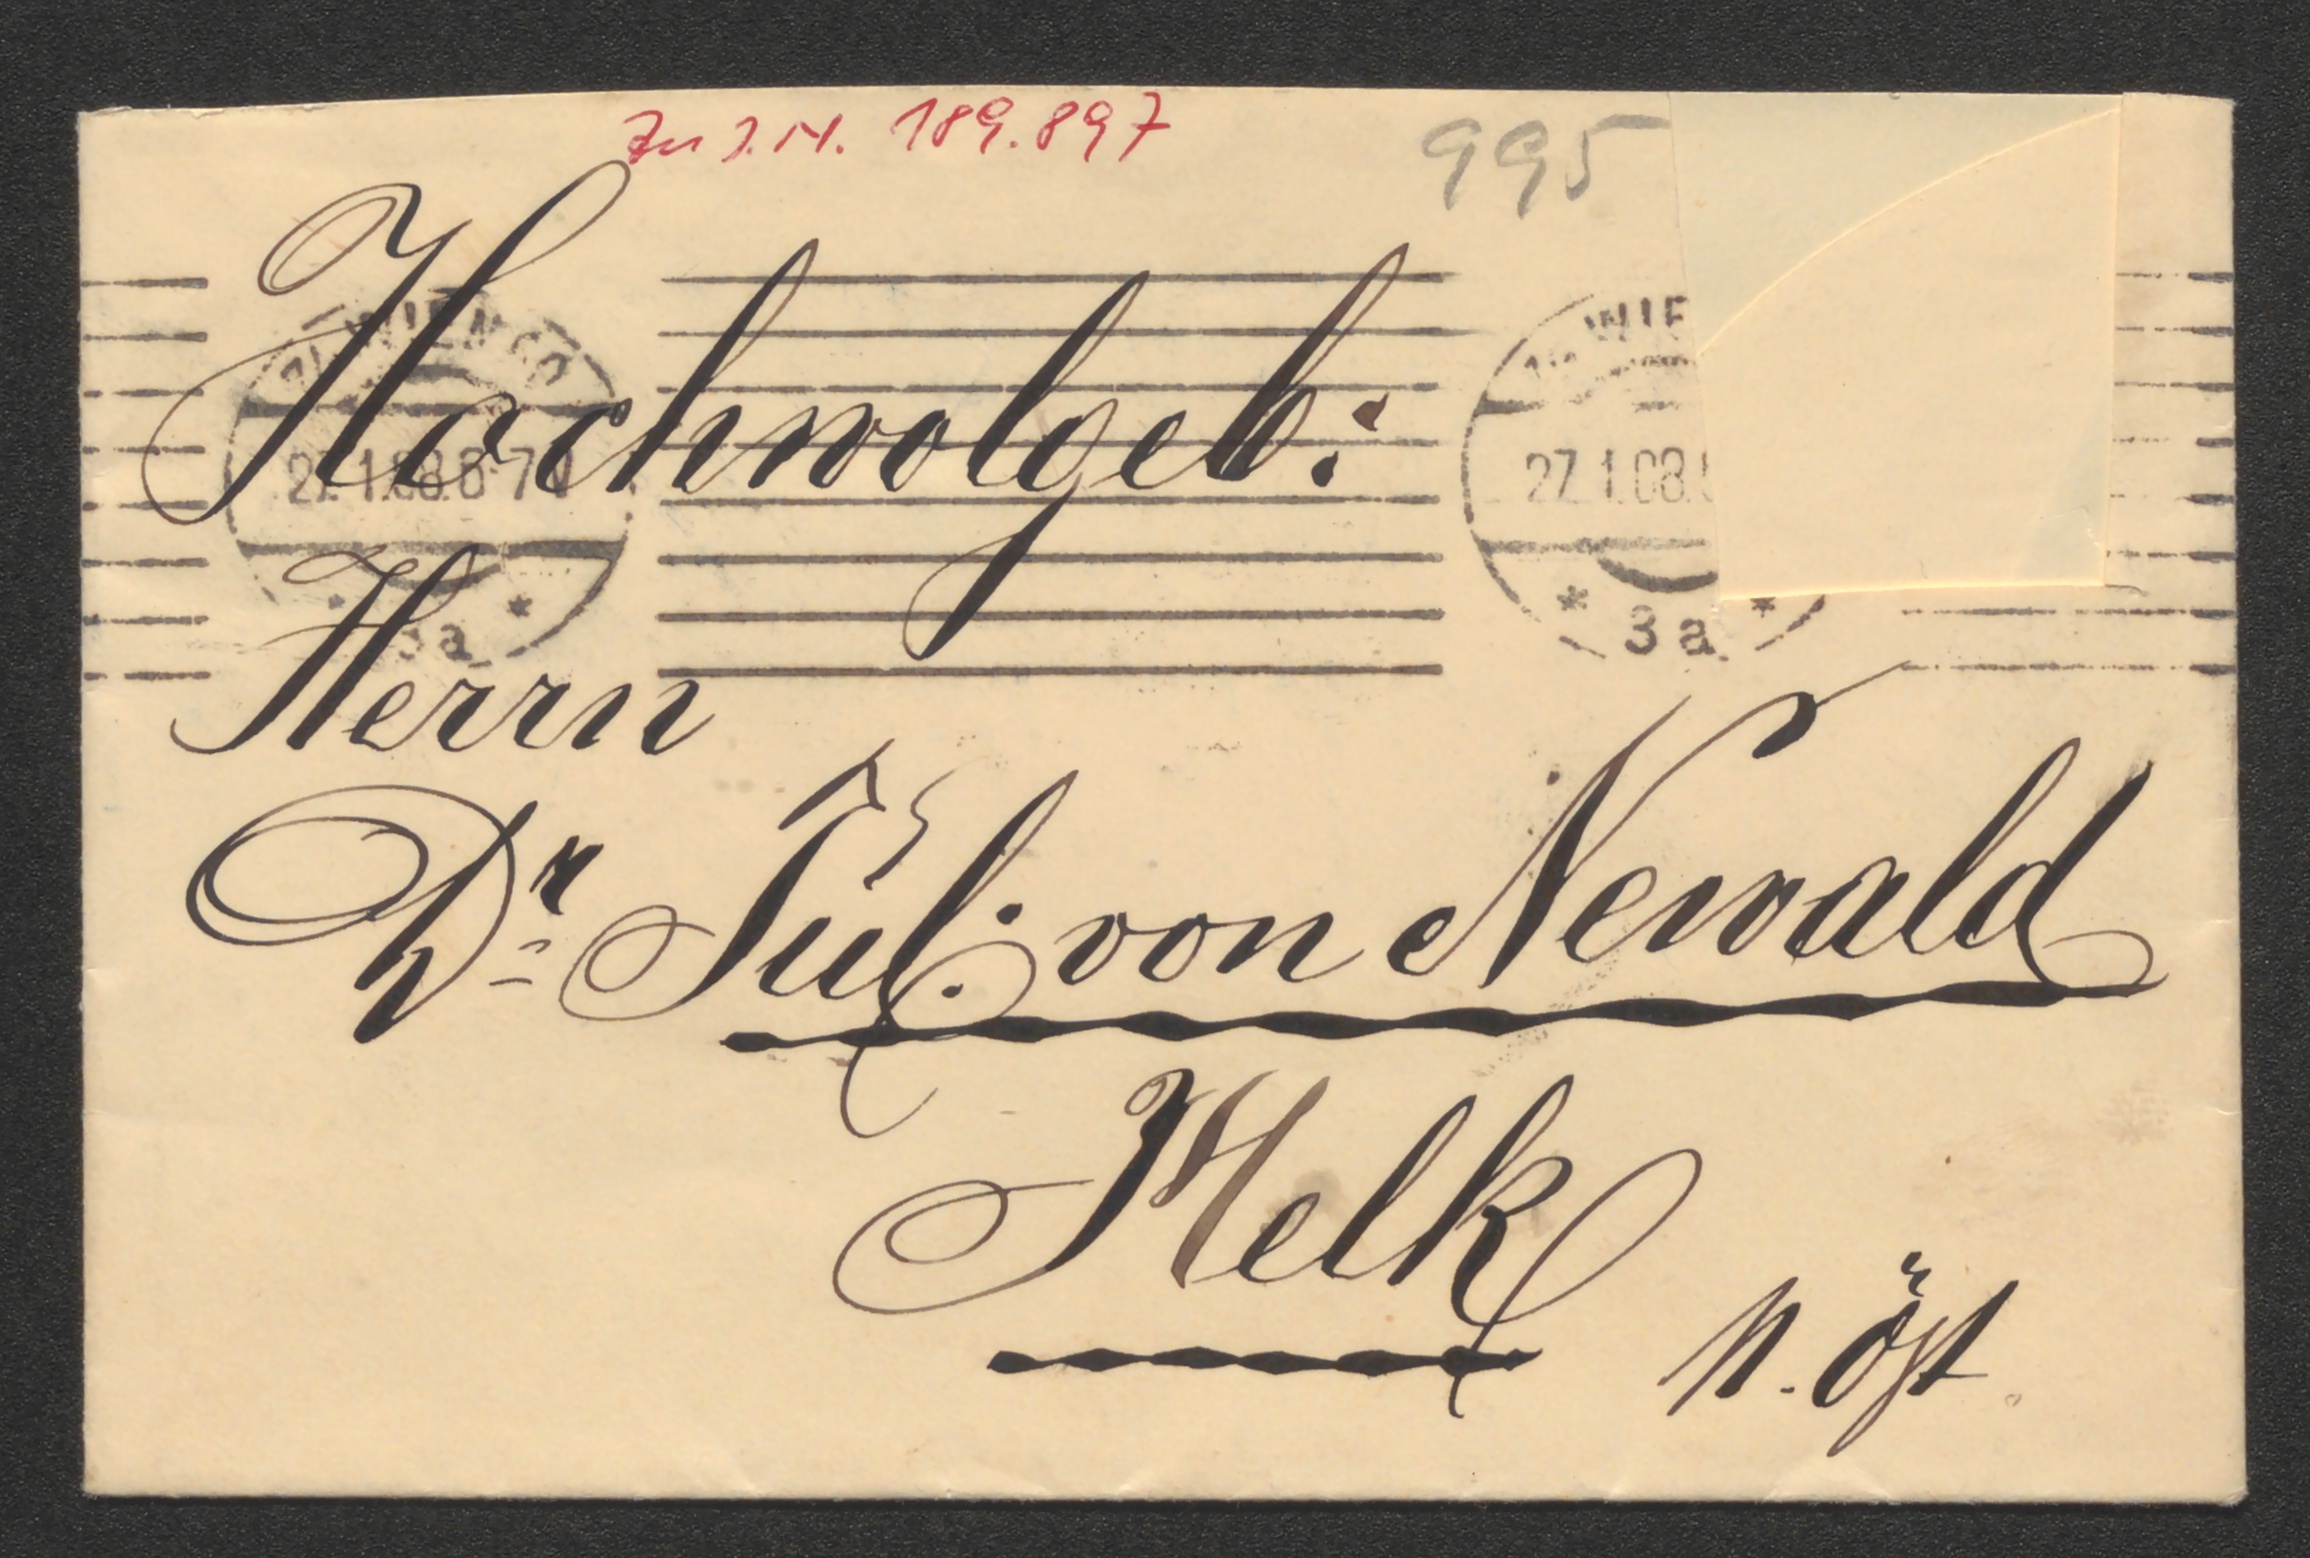 Zu J.N. 189.897
995
Hochwolgeb:
WIEN
WIE
27.1.08.6-7N
27.1.08.
3a
3a
Herrn
Dr Jul: von Newald
Melk
N. Öst.